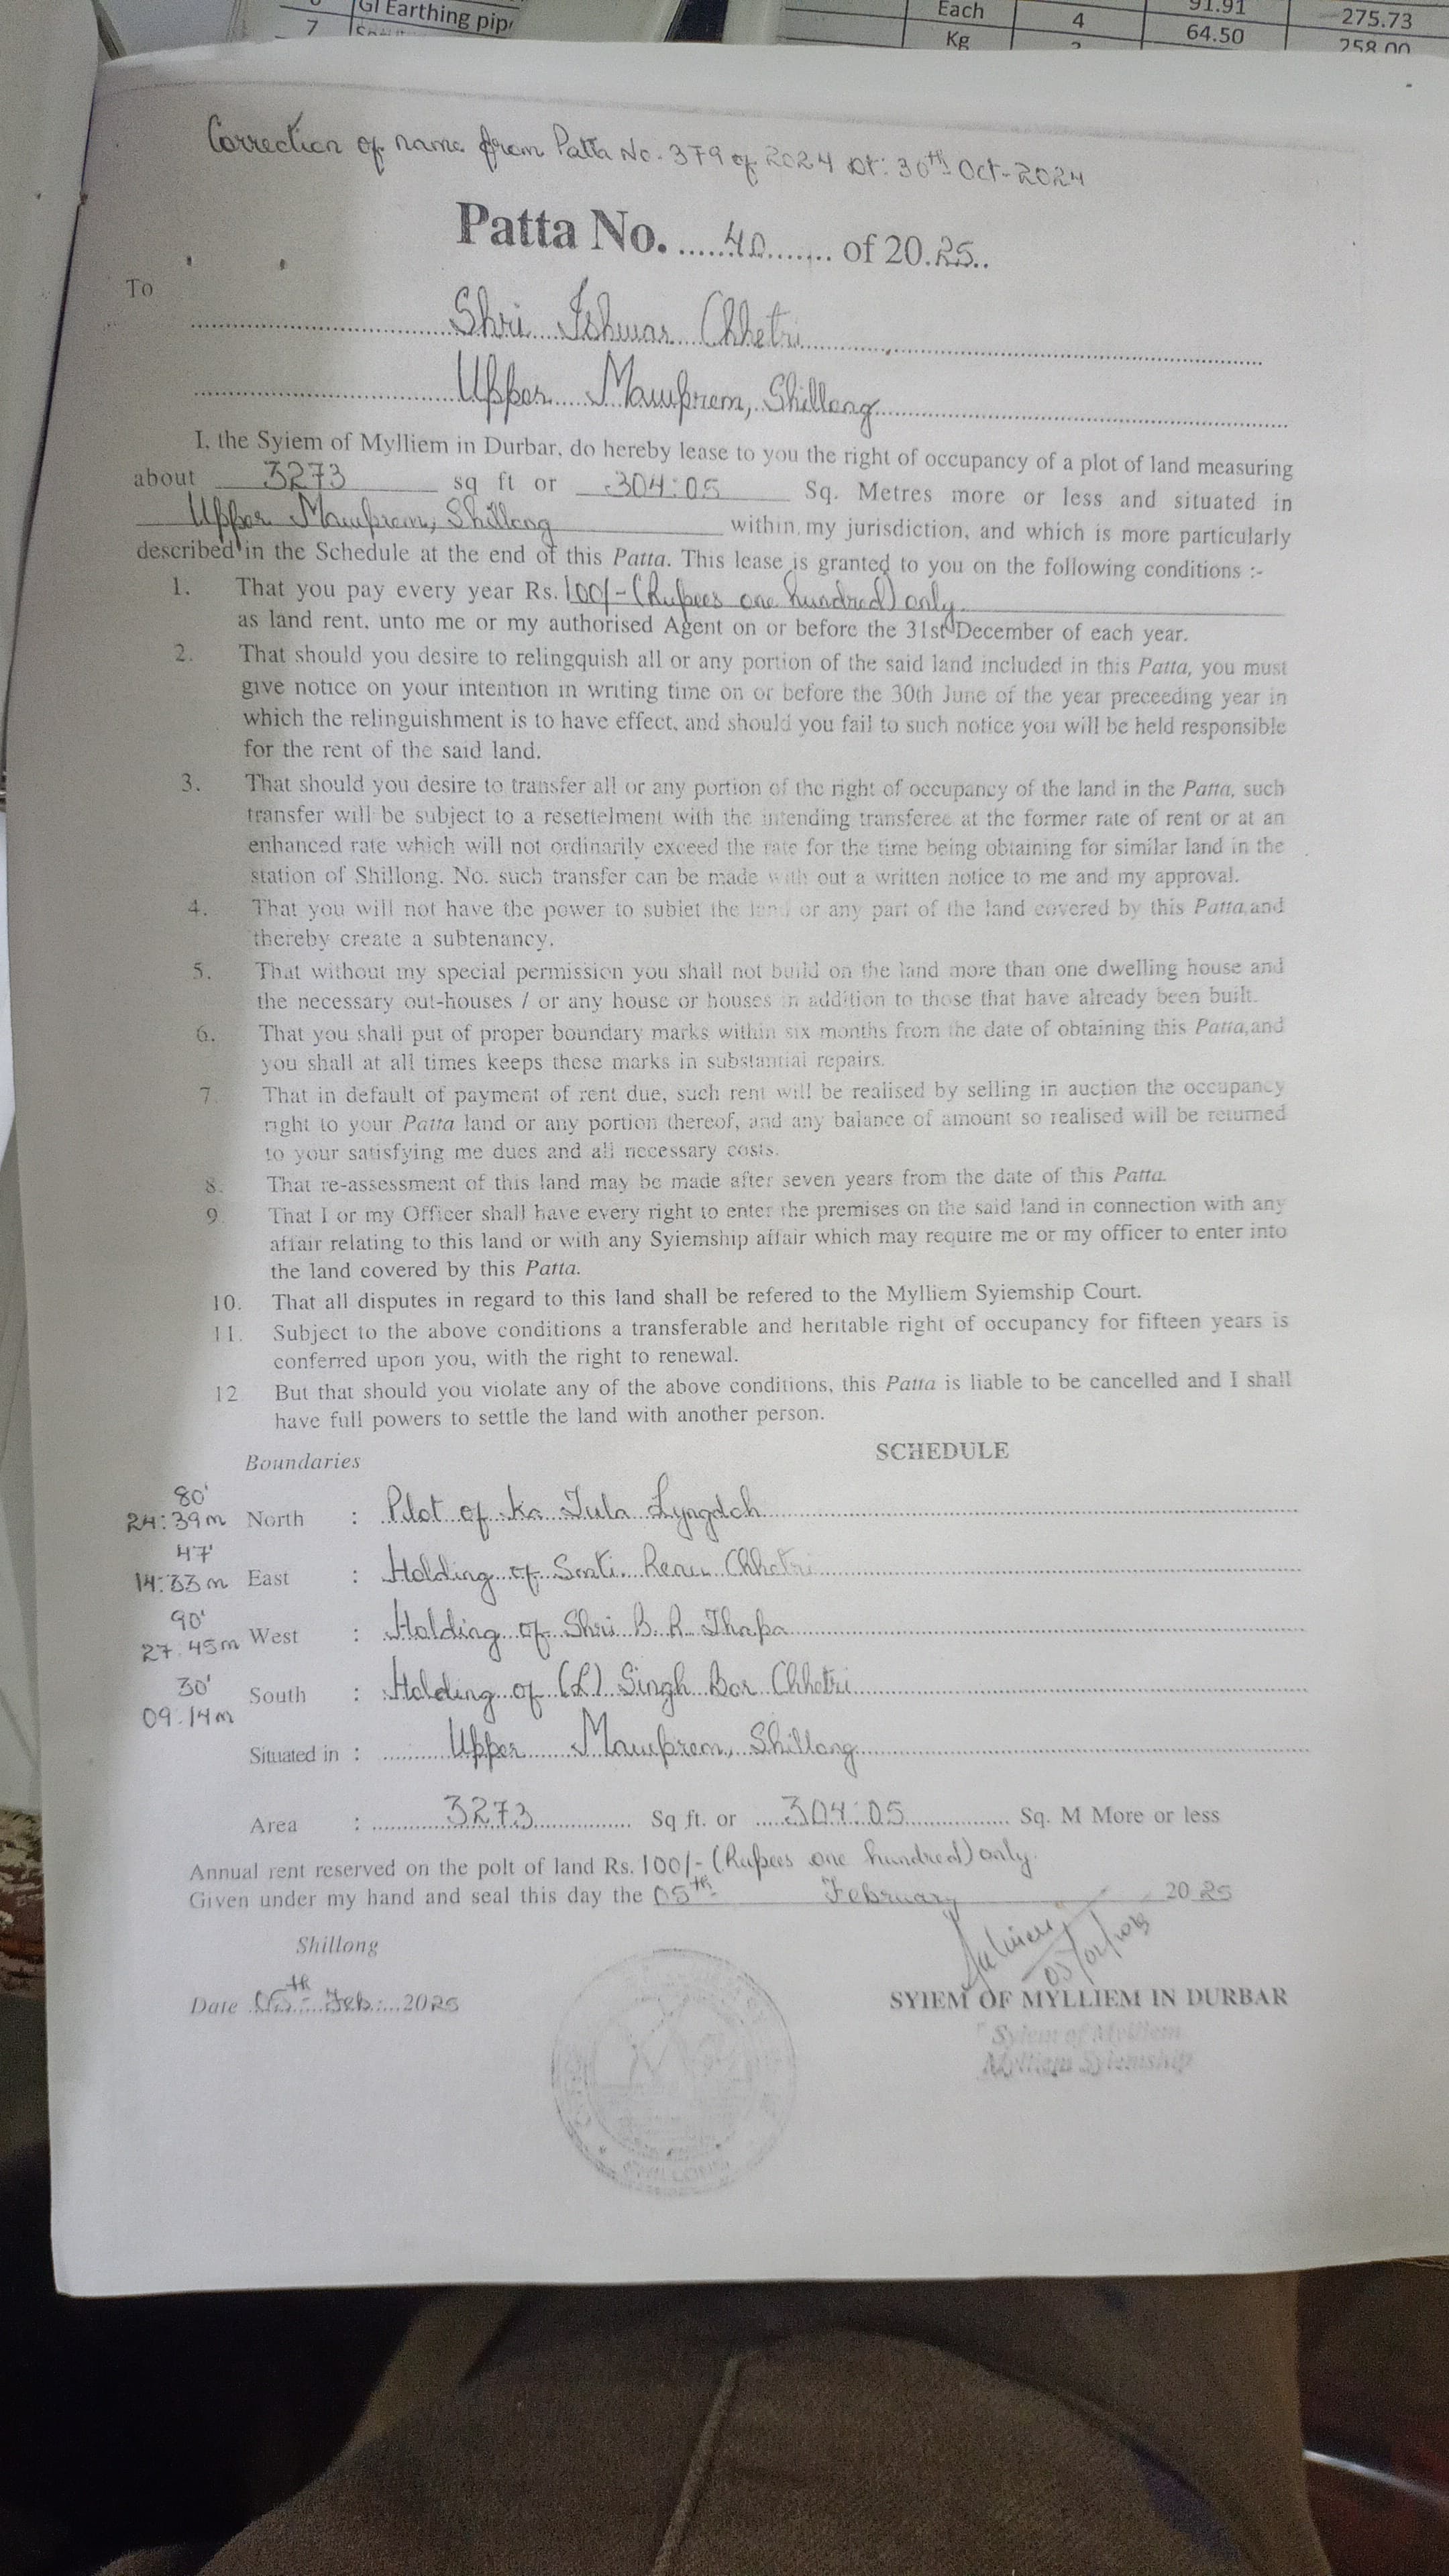 GI Earthing pip
7
Each 4 91.91 275.73
Kg 64.50 258.00
Correction of name from Patta No. 379 of 2024 Dt: 30th Oct-2024
Patta No. .....40........ of 20.25..
To
Shri Ishwar Chhetri
Upper Mawprem, Shillong
I, the Syiem of Mylliem in Durbar, do hereby lease to you the right of occupancy of a plot of land measuring
about 3273 sq ft or 304:05 Sq. Metres more or less and situated in
Upper Mawprem, Shillong within my jurisdiction, and which is more particularly
described in the Schedule at the end of this Patta. This lease is granted to you on the following conditions :-
1. That you pay every year Rs. 100/- (Rupees one hundred) only.
as land rent, unto me or my authorised Agent on or before the 31st December of each year.
2. That should you desire to relingquish all or any portion of the said land included in this Patta, you must
give notice on your intention in writing time on or before the 30th June of the year preceeding year in
which the relinguishment is to have effect, and should you fail to such notice you will be held responsible
for the rent of the said land.
3. That should you desire to transfer all or any portion of the right of occupancy of the land in the Patta, such
transfer will be subject to a resettelment with the intending transferee at the former rate of rent or at an
enhanced rate which will not ordinarily exceed the rate for the time being obtaining for similar land in the
station of Shillong. No. such transfer can be made with out a written notice to me and my approval.
4. That you will not have the power to sublet the land or any part of the land covered by this Patta,and
thereby create a subtenancy.
5. That without my special permission you shall not build on the land more than one dwelling house and
the necessary out-houses / or any house or houses in addition to those that have already been built.
6. That you shall put of proper boundary marks within six months from the date of obtaining this Patta,and
you shall at all times keeps these marks in substantial repairs.
7. That in default of payment of rent due, such rent will be realised by selling in auction the occupancy
right to your Patta land or any portion thereof, and any balance of amount so realised will be returned
to your satisfying me dues and all necessary costs.
8. That re-assessment of this land may be made after seven years from the date of this Patta.
9. That I or my Officer shall have every right to enter the premises on the said land in connection with any
affair relating to this land or with any Syiemship affair which may require me or my officer to enter into
the land covered by this Patta.
10. That all disputes in regard to this land shall be refered to the Mylliem Syiemship Court.
11. Subject to the above conditions a transferable and heritable right of occupancy for fifteen years is
conferred upon you, with the right to renewal.
12. But that should you violate any of the above conditions, this Patta is liable to be cancelled and I shall
have full powers to settle the land with another person.
SCHEDULE
Boundaries
80'
24:39m North : Plot of Ka Tula Lyngdoh
47'
14:33m East : Holding of Smti. Renu Chhetri
90'
27.45m West : Holding of Shri B. R. Thapa
30'
09.14m South : Holding of (L) Singh Bor Chhetri
Situated in : Upper Mawprem, Shillong
Area : 3273 Sq ft. or 304:05 Sq. M More or less
Annual rent reserved on the polt of land Rs. 100/- (Rupees one hundred) only.
Given under my hand and seal this day the 05th February 2025
Shillong
05/02/2025
Date 05th Feb: 2025
SYIEM OF MYLLIEM IN DURBAR
Syiem of Mylliem
Mylliem Syiemship